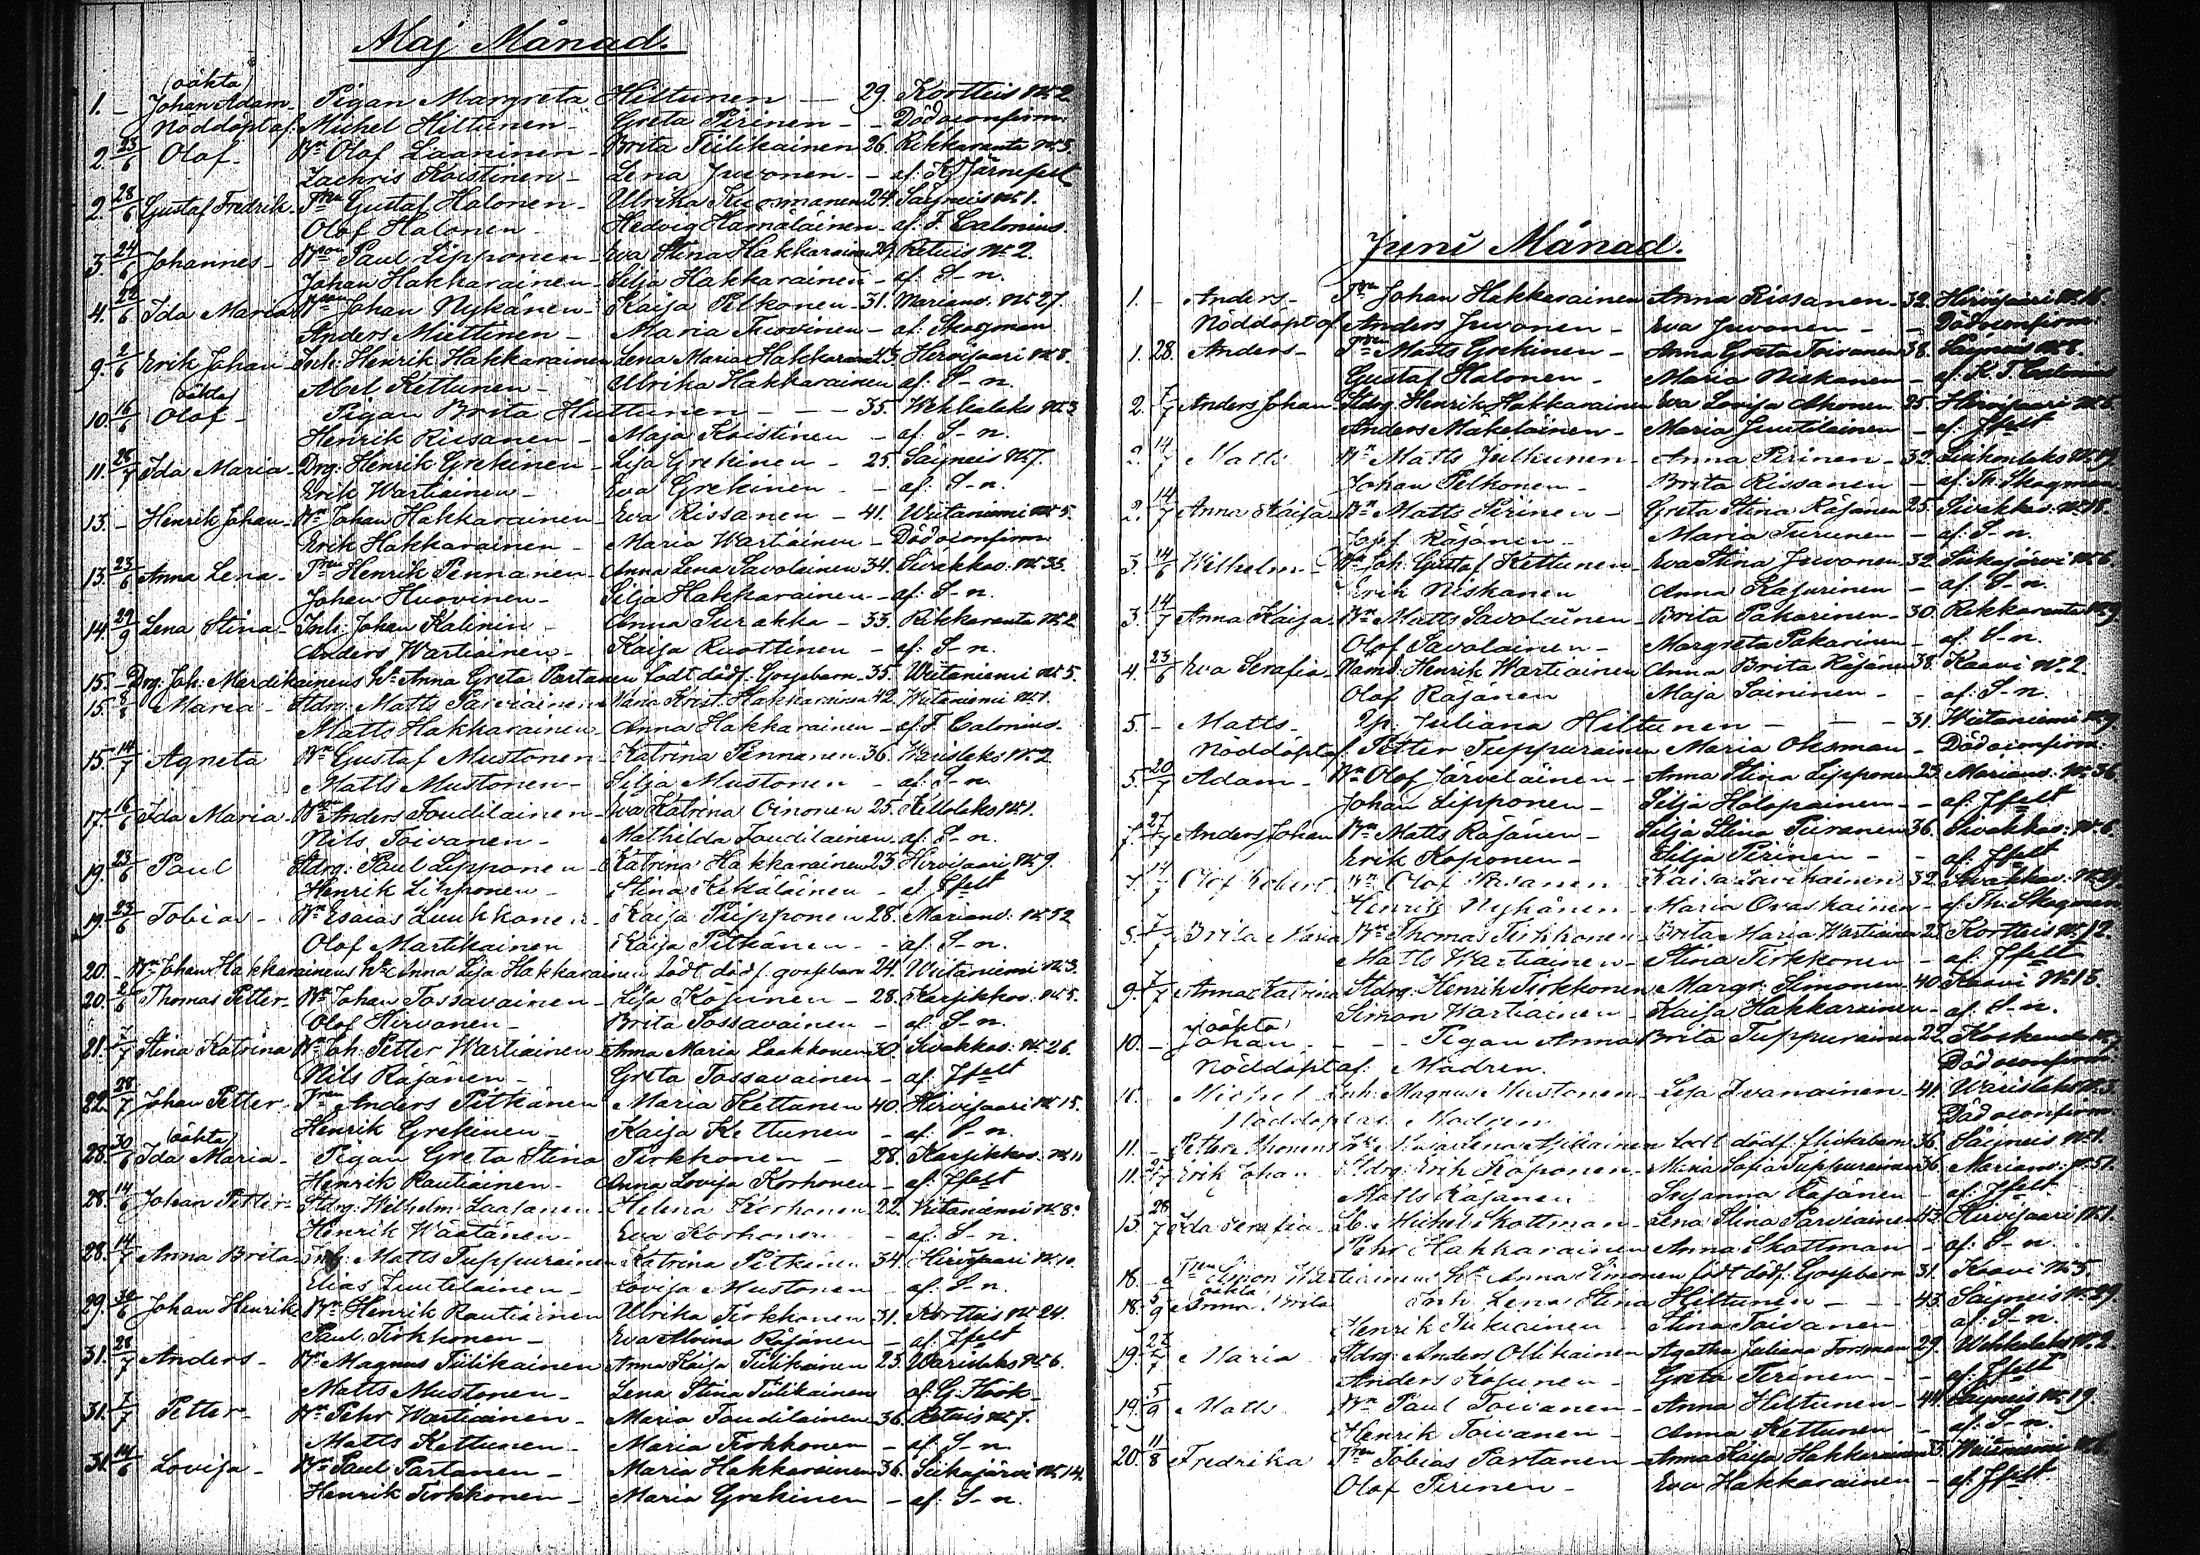 Maj Månad.
(oäkta)
1. – Johan Adam – Pigan Margreta Hiltunen — 29. Kortteis № 2
Nöddöpt af: Michel Hiltunen – Greta Pirinen – – Död oconfirm.
2. 23/6 Olof – Bn Olof Laaninen – Brita Tiilikainen 26. Rikkaranta № 5.
Zachris Koistinen – Lena Juvonen – – af: Kf Järnefelt
2. 28/6 Gustaf Fredrik – Tren Gustaf Halonen – Ulrika Kuosmanen 24. Säyneis № 1.
Olof Halonen – Hedvig Hämäläinen – af: F. Calonius.
3. 24/6 Johannes – Bson Paul Lipponen – Eva Stina Hakkarainen 29. Retuis № 2.
Johan Hakkarainen – Silja Hakkarainen – af: S–n.
4. 22/6 Ida Maria Bson Johan Nykänen – Kaija Pelkonen – 31. Marians. № 27.
Anders Miettinen – Maria Tuovinen – af: Skogman
9. 2/6 Erik Johan – Inh: Henrik Hakkarainen Lena Maria Hakkarain 43. Hirvijaari № 8.
Abel Kettunen – Ulrika Hakkarainen af: S–n.
(oäkta)
10. 16/6 Olof – Pigan Brita Huttunen – – – 35. Wehkalaks № 3
Henrik Rissanen – Maja Koistinen – af: S–n.
11. 28/7 Ida Maria – Drg: Henrik Grekinen – Lisa Grekinen – 25. Säyneis № 7.
Erik Wartiainen – Eva Grekinen – – af: S–n.
13. – Henrik Johan – Bn Johan Hakkarainen – Eva Rissanen – 41. Wiitaniemi № 5.
Erik Hakkarainen – Maria Wartiainen – Död oconfirm
13. 23/6 Anna Lena – Tren Henrik Pennanen – Anna Lena Savolainen 34. Sivakkav. № 35.
Johan Huovinen – Silja Hakkarainen – af: S–n.
14. 29/9 Lena Stina – Inh: Johan Kalinin – Anna Surakka – 33. Rikkaranta № 2
Anders Wartiainen – Kaija Ruottinen – af: S–n.
15. – Drg. Joh: Merdikainens h. Anna Greta Partanen födt dödf: Gossebarn 35. Wiitaniemi № 5.
15. Maria – Stdrg: Matts Parviainen Maria Krist. Hakkarainen 42. Wiitaniemi № 1.
Matts Hakkarainen Anna Hakkarainen – af: F. Calonius.
15. 14/7 Agneta Bn Gustaf Mustonen – Katrina Pennanen 36. Warislaks № 2
Matts Mustonen – Silja Mustonen – af: S–n
17. 16/6 Ida Maria – Bn Anders Toudilainen – Eva Katrina Oinonen 25. Killolaks № 1.
Nils Toivanen – Mathilda Toudilainen – af: S–n.
19. 23/6 Paul Stdrg: Paul Lipponen – Katrina Hakkarainen 23. Hirvijaari № 9.
Henrik Lipponen – Stina Kekäläinen – af: Jfelt
19. 23/6 Tobias – Bn Esaias Luukkonen – Kaija Pipponen 28. Marians: № 52
Olof Martikainen Kaija Pitkänen – – af: S–n.
20. – Bn Johan Hakkarainens h. Anna Lisa Hakkarainen födt dödf. gossebarn 24. Wiitaniemi № 3.
20. 2/6 Thomas Petter – Bn Johan Tossavainen – Lisa Kojunen – 28. Karsikkov. № 5.
Olof Hirvonen – Brita Tossavainen – af: S–n.
21. 7/7 Stina Katrina Bn Joh: Petter Wartiainen – Anna Maria Laakkonen 30. Sivakkav. № 26.
Nils Räjänen – Greta Tossavainen – af: Jfelt
22. 28/7 Johan Petter – Tren Anders Pitkänen Maria Kettunen 40. Hirvijaari № 15.
Henrik Grekinen – Kaija Kettunen – af: S–n.
(oäkta)
28. 30/6 Ida Maria – Pigan Greta Stina Tirkkonen – 28. Karsikkov. № 11
Henrik Rautiainen – Anna Lovisa Korhonen – af: Jfelt
28. 14/6 Johan Petter – Stdrg: Wilhelm Laatanen – Helena Korhonen – 22. Witaniemi № 8.
Henrik Wäätänen – Eva Korhonen – af: S–n.
28. 14/7 Anna Brita – Inh: Matts Tuppurainen Katrina Pitkänen 34. Hirvijaari № 10.
Elias Juutilainen – Lovisa Mustonen – af: S–n.
29. 30/6 Johan Henrik Bn Henrik Rautiainen Ulrika Tirkkonen 31. Korttais № 24.
Paul Tirkkonen – Eva Alvina Räjänen – af: Jfelt
31. 28/7 Anders – Bn Magnus Tiilikainen Anna Kaija Tiilikainen 23. Warislaks № 6.
Matts Mustonen – Lena Stina Tiilikainen af: G. Höök –
31. 7/7 Petter – Bn Pehr Wartiainen – Maria Toudilainen 36. Retuis № 7.
Matts Kettunen – Maria Tirkkonen – af: S–n.
31. 14/6 Lovisa – Bn Paul Partanen – Maria Hakkarainen 36. Siikajärvi № 14.
Henrik Tirkkonen – Maria Grekinen – af: S–n.
Juni Månad.
1. – Anders – Tren Johan Hakkarainen Anna Rissanen – 32. Hirvijaari № 16.
Nöddöpt af Anders Juvonen – Eva Juvonen – – Död oconfirm
1. 28. Anders – Tren Matts Grekinen – Anna Greta Toivanen 38. Säyneis № 8.
Gustaf Halonen – Maria Niskanen – af: K. F. Calonius
2. 7/7 Anders Johan Stdrg: Henrik Hakkarainen Eva Lovisa Ahonen 35. Hirvijaari № 8.
Anders Mäkeläinen – Maria Juutilainen – af: Jfelt
2. 14/7 Matts Bn Matts Julkunen – Anna Pirinen – 32. № 19
Johan Pelkonen – Brita Rissanen – af: Th. Skogman
2. 14/7 Anna Kaija – Bn Matts Pirinen – Greta Stina Räjänen 25. Sivakkav. № 18.
Josef Räjänen – Maria Turunen – af: S–n.
3. 14/6 Wilhelm – Bn Joh: Gustaf Kettunen – Eva Stina Juvonen 32. Siikajärvi № 6
Erik Niskanen Anna Kasurinen – af: S–n
3. 14/7 Anna Kaija – Bn Matts Savolainen – Brita Pakarinen – 30. Rikkaranta № 9
Olof Savolainen – Margreta Pakarinen – af: S–n.
4. 23/6 Eva Serafia – Nämd: Henrik Wartiainen Anna Brita Räjänen 38. Kaavi № 2.
Olof Räjänen Maja Saininen – – af: S–n.
5. – Matts – Juliana Hiltunen – – – 31. Wiitaniemi № 9
Nöddöpt af: Petter Tuppurainen Maria Oksman – Död oconfirm.
5. 20/7 Adam – Bn Olof Järveläinen – Anna Stina Lipponen 25. Marians: № 36
Johan Lipponen – Silja Holopainen – – af: Jfelt
7. 27/7 Anders Johan Bn Matts Räjänen – Silja Stina Piiranen 36. Sivakkav. № 6.
Erik Koponen – Silja Pirinen – – af: Jfelt
7. Olof Robert Bn Olof Kaisa Savikainen 32. Sivakkav. № 29
Henrik Nykänen – Maria Ovaskainen – af: Th: Skogman
8. 7/7 Brita Maria Bn Thomas Tirkkonen – Brita Maria Wartiainen 25. Korttais № 12.
Matts Wartiainen – Stina Tirkkonen – af: Jfelt
9. 7/7 Anna Katrina Stdrg: Henrik Tirkkonen Margr: Simonen – 40. Kaavi № 13.
Simon Wartiainen – Kaija Hakkarainen – af: S–n.
(oäkta)
10. – Johan – – Pigan Anna Brita Tuppurainen 22. №
Nöddöpt af: Modren. Död oconfirm
10. Michel Inh: Magnus Mustonen – Lisa Ivanainen – 41. Warislaks № 3.
Nöddöpt af Modren Död oconfirm
11. – Petter h. Lena födt dödf. flickebarn 36. Säyneis № 1.
11. Erik Johan Stdrg: Erik Koponen – Maria Sofia Tuppurainen 36. Marians: № 51
Matts Räjänen Susanna Räjänen – af: Jfelt
13. 28/7 Ida Serafia – Michel Skottman – Lena Stina Parviainen 43. Hirvijaari № 1.
Pehr Hakkarainen Anna Skottman – af: S–n.
18. – Tren Simon Wartiainens h. Anna Simonen födt dödf. Gossebarn 31. Kaavi № 5.
(oäkta)
18. 5/9 Anna Brita Inh: Lena Stina Hiltunen – – 43. Säyneis № 29
Henrik Stina Toivanen af: S–n.
19. 27/7 Maria Stdrg: Anders Ollikainen – Agatha Juliana Forsman 29. Wehkalaks № 2.
Anders Kojunen – Greta Pirinen – – af: Jfelt
19. 5/9 Matts Bn Paul Toivanen – Anna Hiltunen – 44. Säyneis № 19.
Henrik Toivanen – Anna Kettunen – af: S–n.
20. 11/8 Fredrika Tren Tobias Partanen – Anna Kaija Hakkarainen 33. Wiitaniemi
Olof Pirinen – Eva Hakkarainen – af: Jfelt